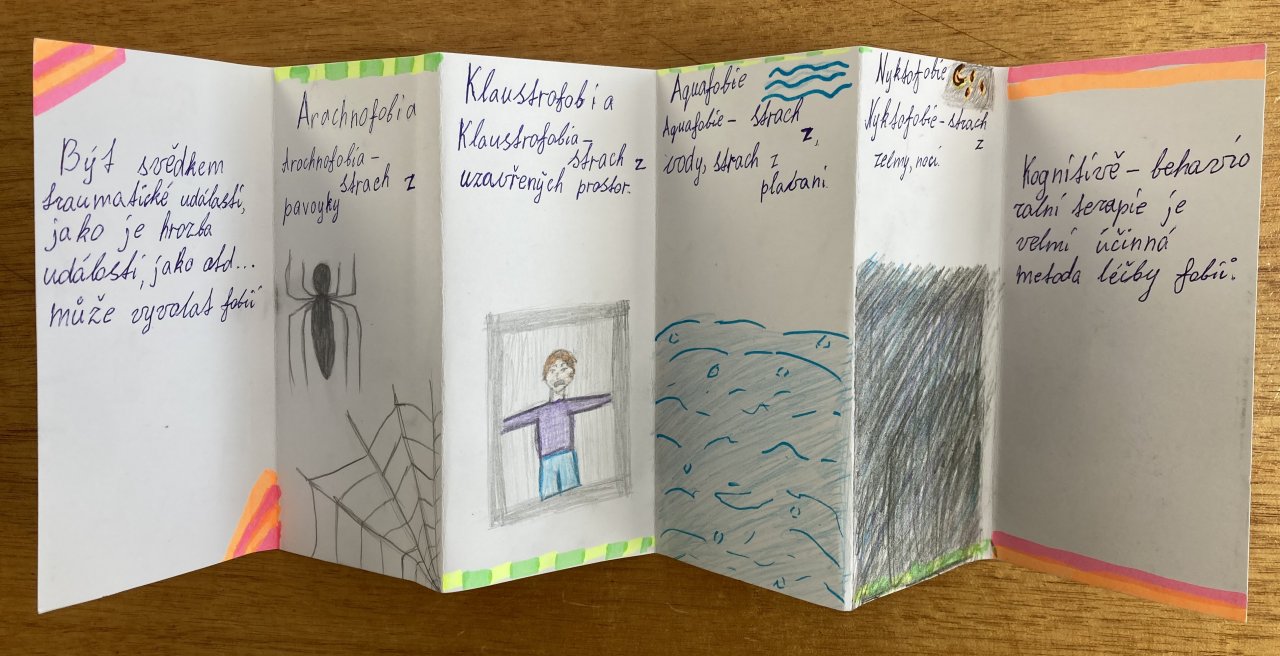 Být svědkem
traumatické události,
jako je hrozba
události, jako atd...
může vyvolat fobii
Arachnofobia
Arachnofobia -
strach z
pavouky
Klaustrofobia
Klaustrofobia -
strach z
uzavřených prostor.
Aquafobie
Aquafobie - strach
z,
vody, strach z
plavani.
Nyktofobie
Nyktofobie - strach
z
telmy, noci.
Kognitivě - behavio
ralní terapie je
velmi účinná
metoda léčby fobií.